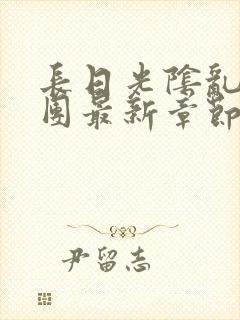 長日光陰亂
團最新章節
尹留志